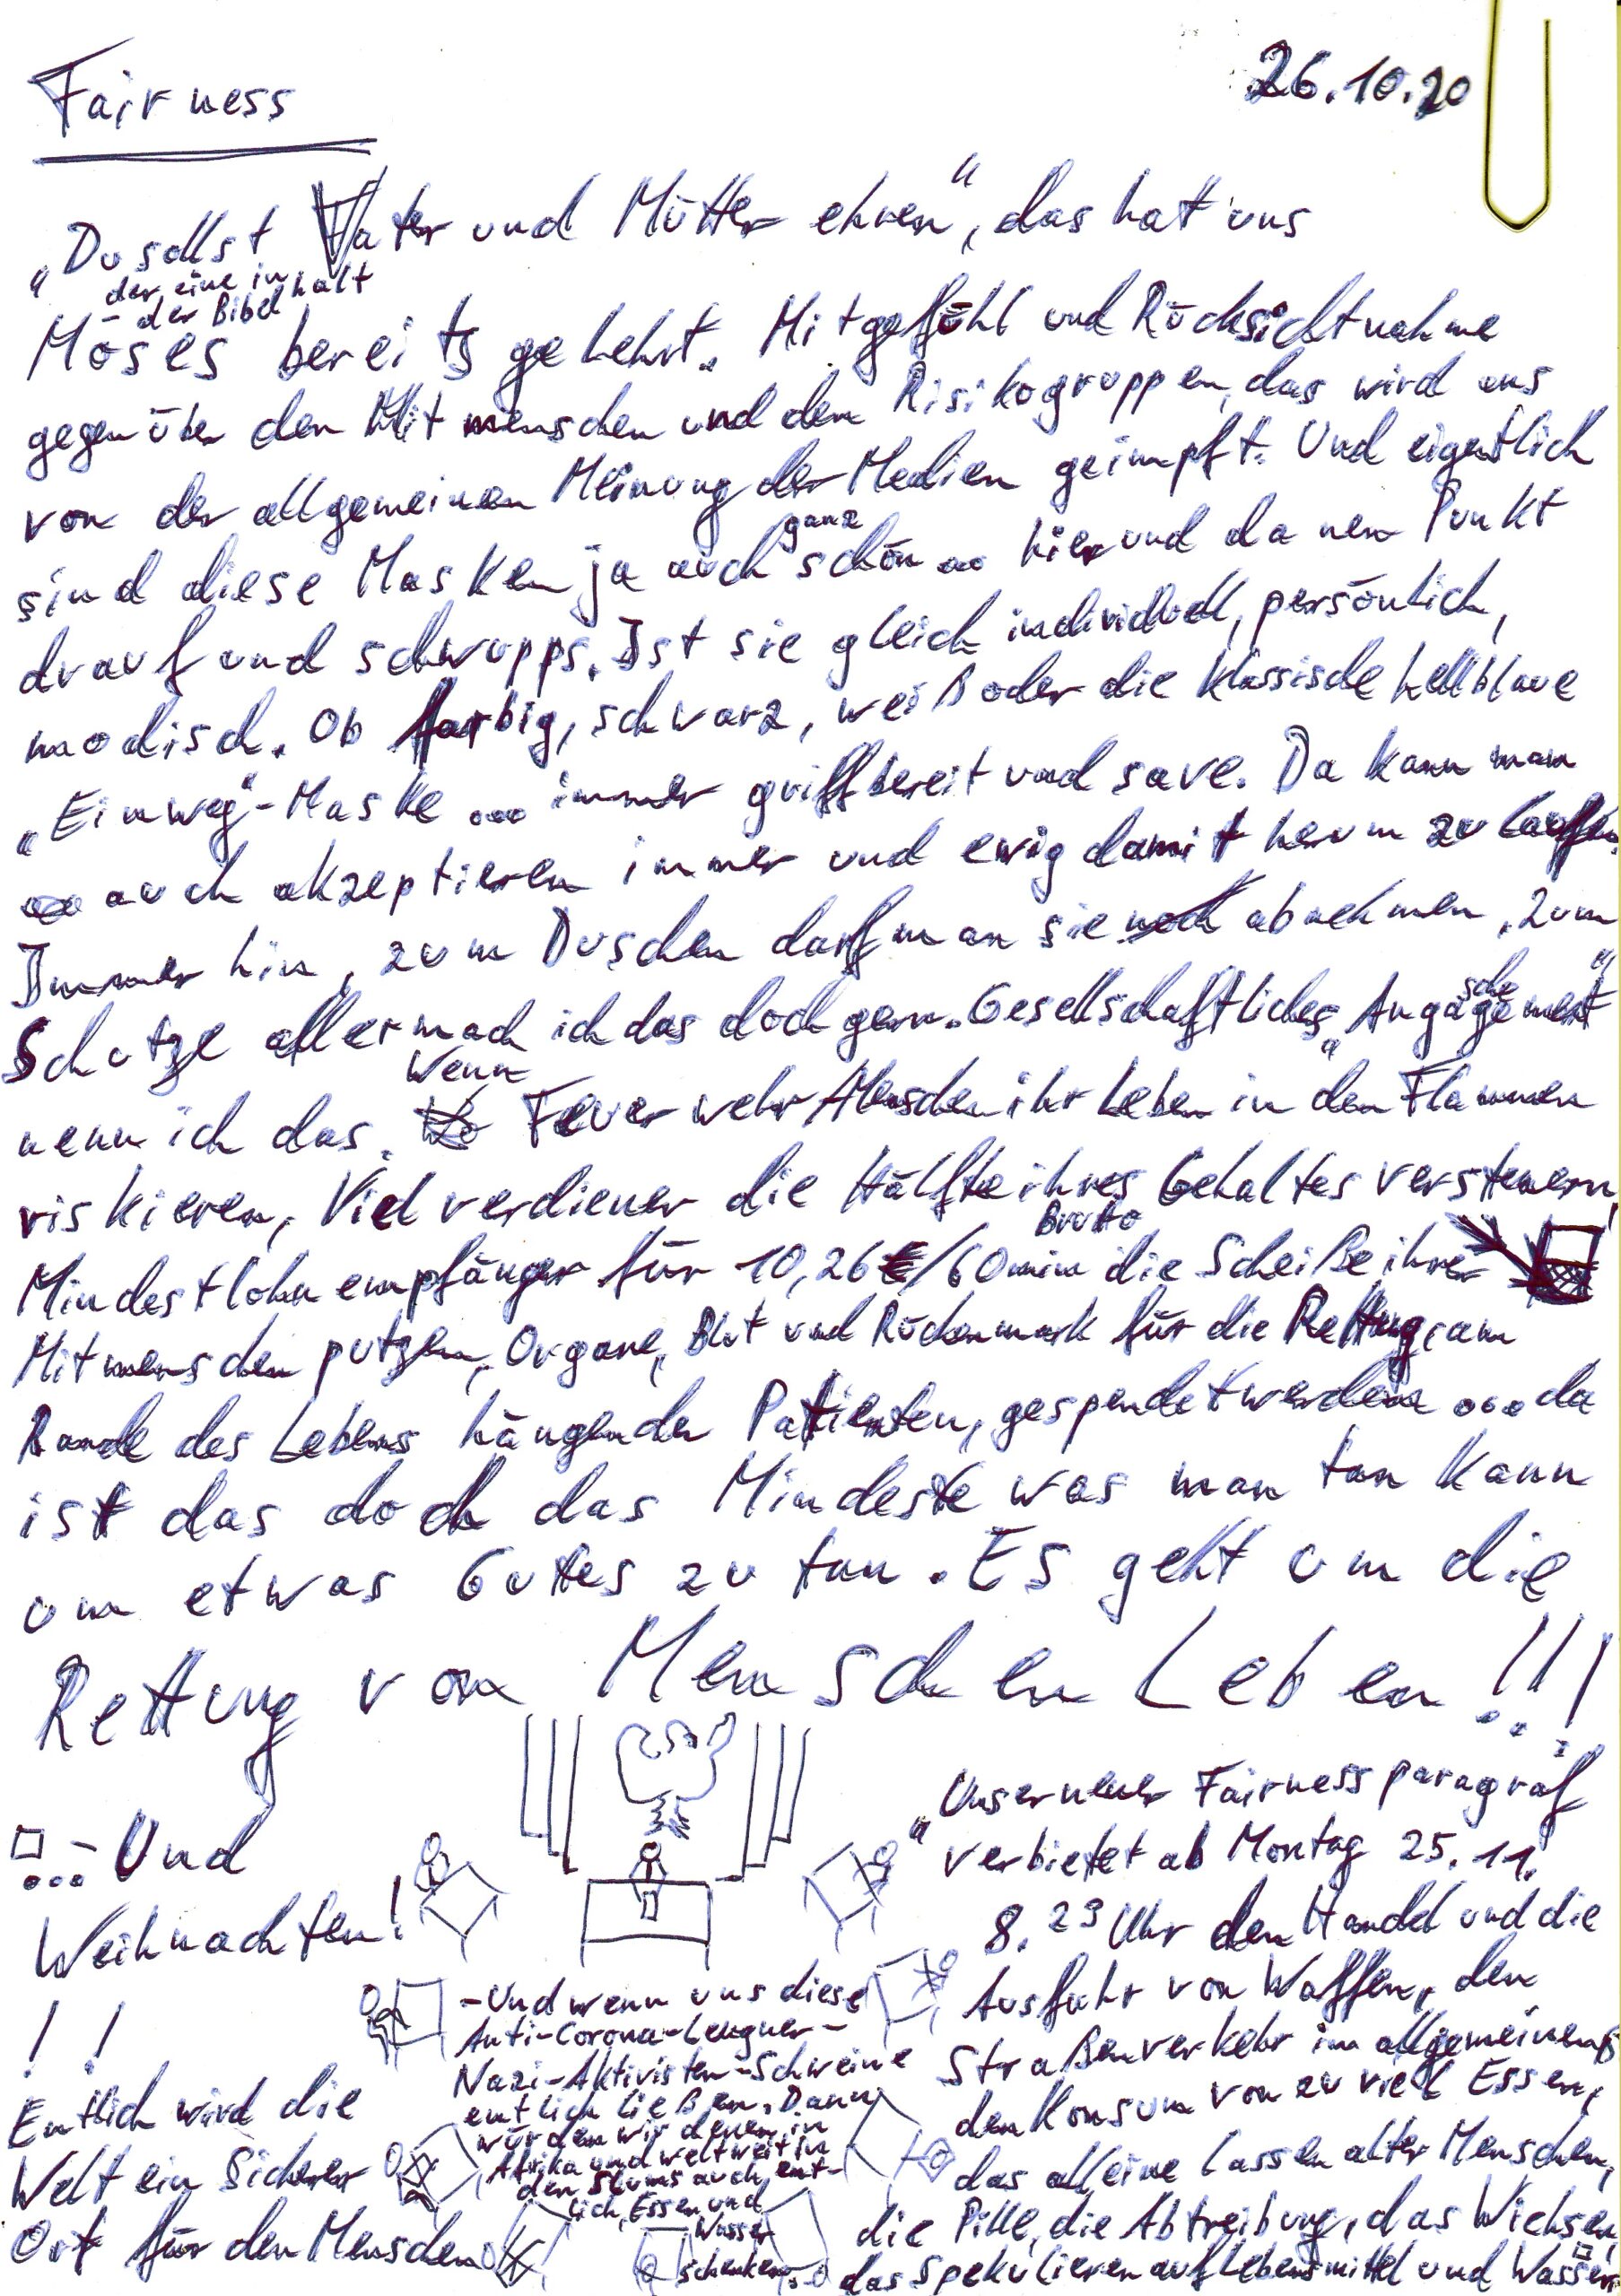 26.10.20
Fairness
„Du sollst Vater und Mutter ehren“, das hat uns
der eine inhalt
- der Bibel
Moses bereits gelehrt. Mitgefühl und Rücksichtnahme
gegenüber den Mitmenschen und den Risikogruppen, das wird uns
von der allgemeinen Meinung der Medien geimpft. Und eigentlich
sind diese Masken ja auch ganz schön ... hier und da nen Punkt
drauf und schwupps. Ist sie gleich individuell, persönlich,
modisch. Ob farbig, schwarz, weiß oder die klassische hellblaue
„Einweg“-Maske ... immer griffbereit und save. Da kann man
auch akzeptieren immer und ewig damit herum zu laufen.
Immer hin, zum Duschen darf man sie noch abnehmen. Zum
Schutze aller mach ich das doch gern. Gesellschaftliches „Angagschement“
nenn ich das. Wenn Feuerwehr Menschen ihr Leben in den Flammen
riskieren, Vielverdiener die Hälfte ihres Gehaltes versteuern,
Mindestlohnempfänger für 10,26€/60min Brutto die Scheiße ihrer
Mitmenschen putzen, Organe, Blut und Rückenmark für die Rettung, am
Rande des Lebens hängender Patienten, gespendet werden ... da
ist das doch das Mindeste was man tun kann
um etwas Gutes zu tun. Es geht um die
Rettung von Menschen Leben!!!
...- Und
Weihnachten!
! !
Entlich wird die
Welt ein Sicherer
Ort für den Menschen
-Und wenn uns diese
Anti-Corona-Leugner-
Nazi-Aktivisten-Schweine
entlich ließen. Dann
würden wir denen in
Afrika und weltweit in
den Slums auch ent-
lich, Essen und
Wasser
schenken...
„Unser neuer Fairnessparagraf
verbietet ab Montag 25.11.
8.23 Uhr den Handel und die
Ausfuhr von Waffen, den
Straßenverkehr im allgemeinen,
den Konsum von zu viel Essen,
das alleine lassen alter Menschen,
die Pille, die Abtreibung, das Wichsen,
das spekulieren auf Lebensmittel und Wasser